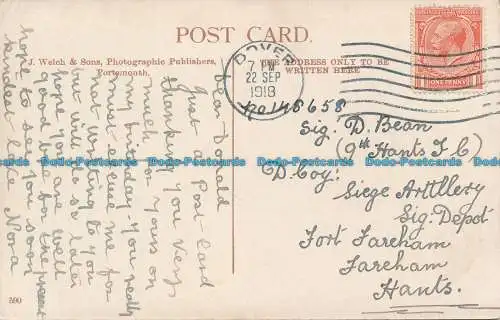 POST CARD.
J. Welch & Sons, Photographic Publishers,
Portsmouth.
THE ADDRESS ONLY TO BE
WRITTEN HERE
DOVER
7 PM
22 SEP
1918
POSTAGE
ONE PENNY
Dear Donald
Just a Post-card
thanking you very
much for yours on
my birthday. You really
must excuse me for
not writing to you
but will do so later
hope you are well
good bye for the present
hope to see you soon
kindest love Nora
No 148658
Sig. D. Bean
(9th Hants T C)
D. Coy:
Siege Arttlery
Sig: Depot
Fort Fareham
Fareham
Hants.
590
Dodo-Postcards Dodo-Postcards Dodo-Postcards Dodo-Postcards Dodo-Postcards